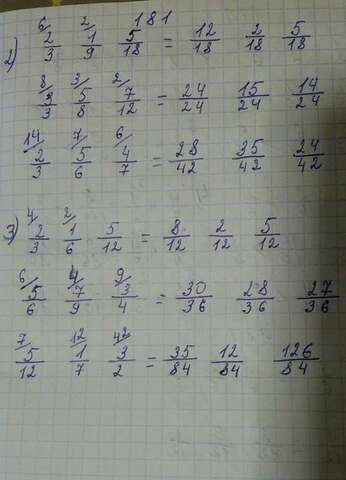 181
2) 6/ 2/3 2/ 1/9 5/18 = 12/18 2/18 5/18
8/ 3/3 3/ 5/8 2/ 7/12 = 24/24 15/24 14/24
14/ 2/3 7/ 5/6 6/ 4/7 = 28/42 35/42 24/42
3) 4/ 2/3 2/ 1/6 5/12 = 8/12 2/12 5/12
6/ 5/6 4/ 7/9 9/ 3/4 = 30/36 28/36 27/36
7/ 5/12 12/ 1/7 42/ 3/2 = 35/84 12/84 126/84